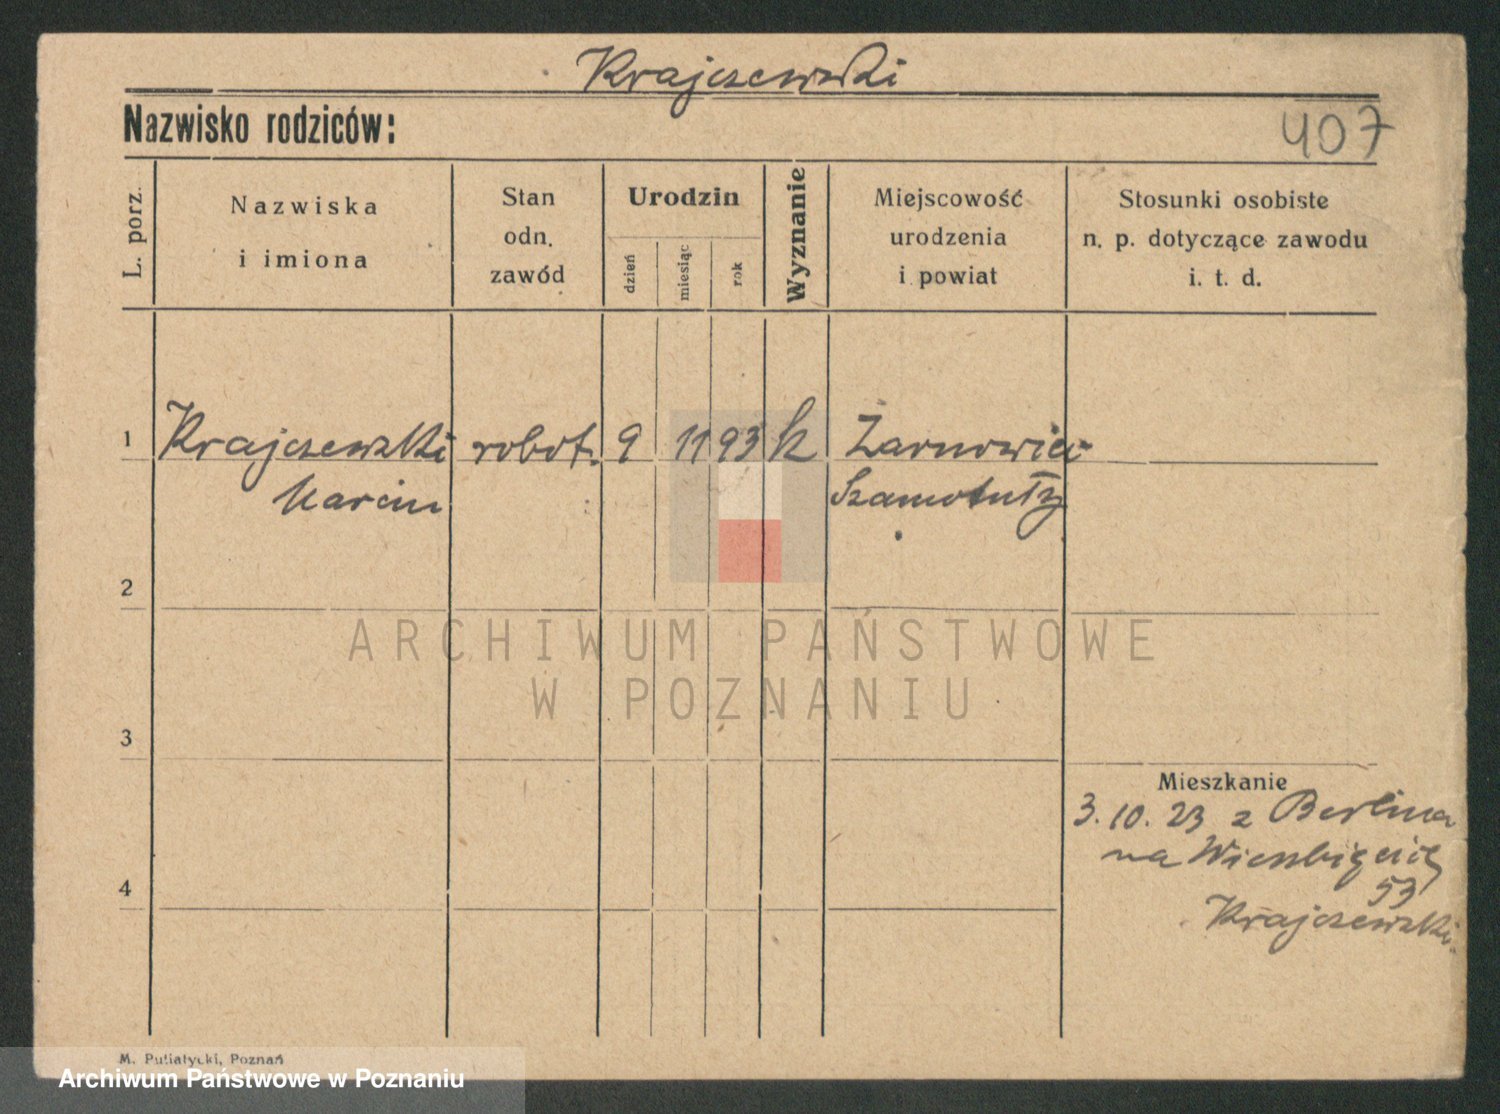 Krajczewski
Nazwisko rodziców:
407
L. porz.
Nazwiska
i imiona
Stan
odn.
zawód
Urodzin
dzień
miesiąc
rok
Wyznanie
Miejscowość
urodzenia
i powiat
Stosunki osobiste
n. p. dotyczące zawodu
i. t. d.
1 Krajczewski robot. 9 11 93 k Żarnowiec
Marcin Szamotuły
2
ARCHIWUM PAŃSTWOWE
W POZNANIU
3
Mieszkanie
3. 10. 23 z Berlina
na
4
53
Krajczewski.
M. Putiatycki, Poznań
Archiwum Państwowe w Poznaniu